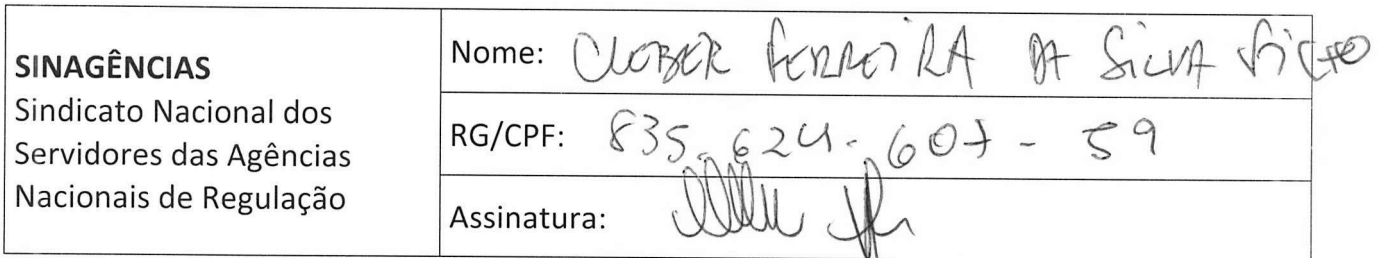 SINAGÊNCIAS
Sindicato Nacional dos
Servidores das Agências
Nacionais de Regulação
Nome: CLEBER FERREIRA DA SILVA FILHO
RG/CPF: 835.624.607-59
Assinatura: